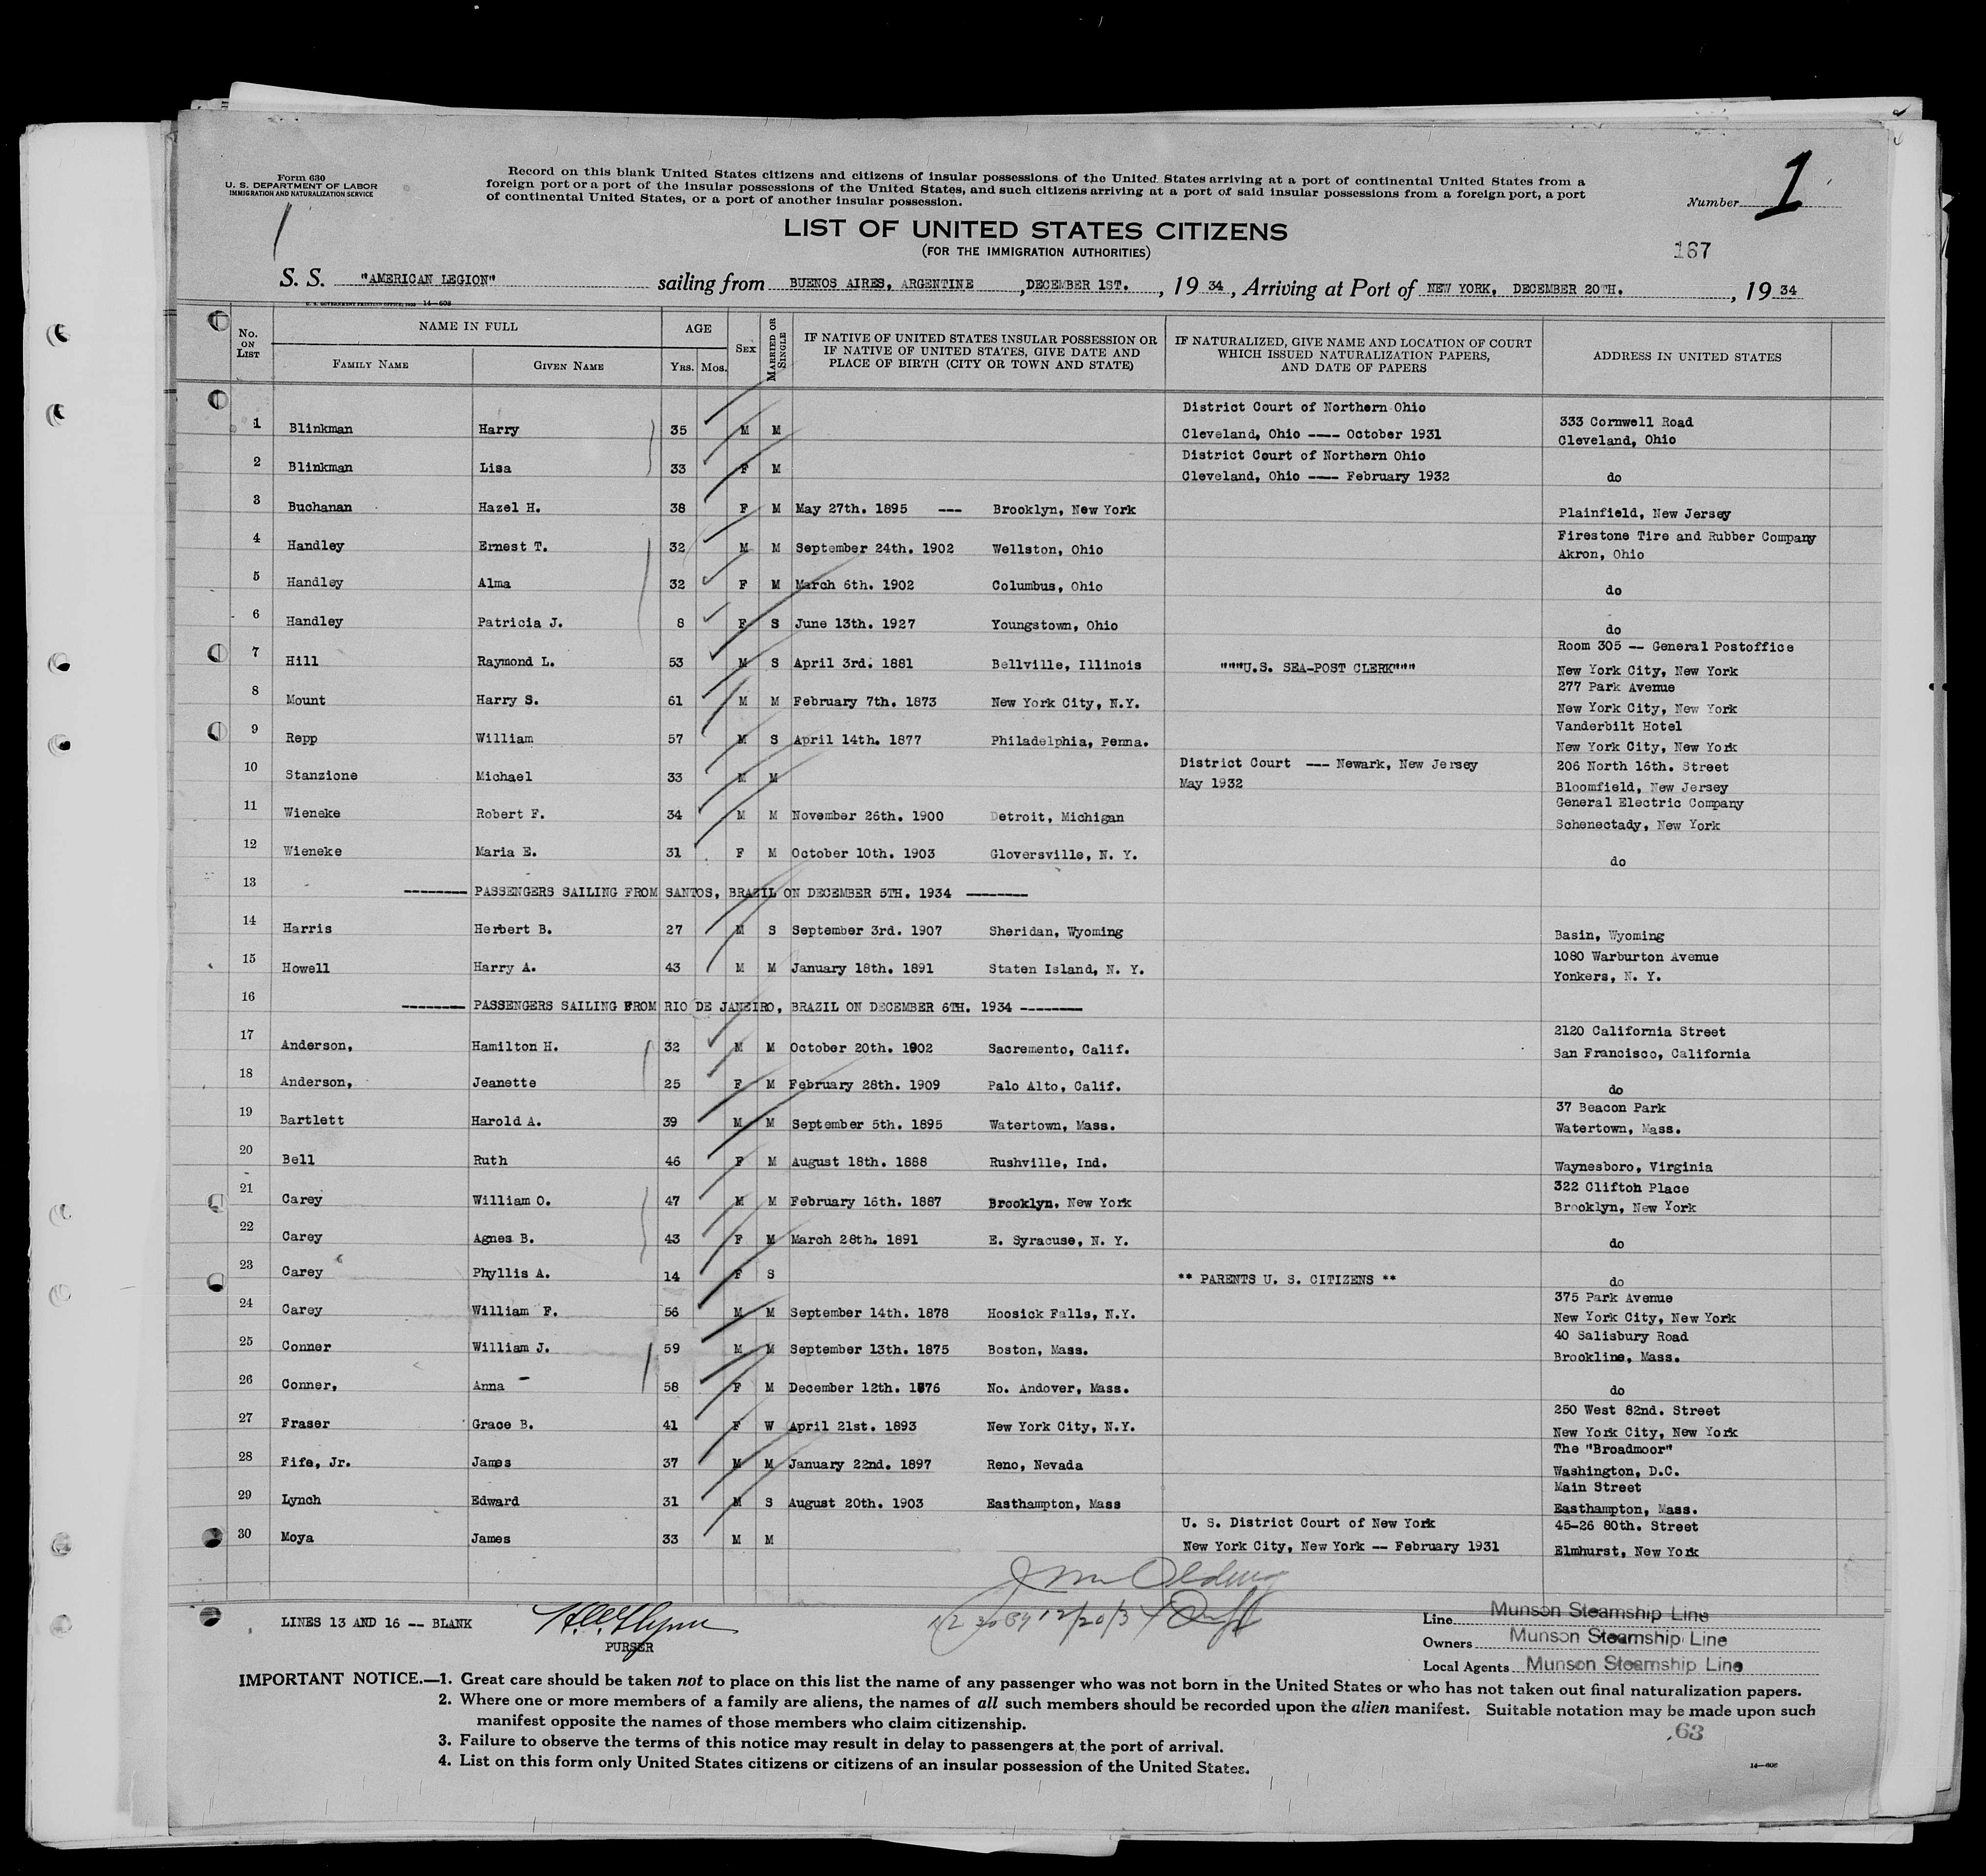 Form 630
U. S. DEPARTMENT OF LABOR
IMMIGRATION AND NATURALIZATION SERVICE
Record on this blank United States citizens and citizens of insular possessions of the United States arriving at a port of continental United States from a
foreign port or a port of the insular possessions of the United States, and such citizens arriving at a port of said insular possessions from a foreign port, a port
of continental United States, or a port of another insular possession.
Number 1
LIST OF UNITED STATES CITIZENS
(FOR THE IMMIGRATION AUTHORITIES)
167
S. S. "AMERICAN LEGION" sailing from BUENOS AIRES, ARGENTINE, DECEMBER 1ST., 1934, Arriving at Port of NEW YORK, DECEMBER 20TH., 1934
No. ON LIST
NAME IN FULL
FAMILY NAME GIVEN NAME
AGE
YRS. MOS.
SEX
MARRIED OR SINGLE
IF NATIVE OF UNITED STATES INSULAR POSSESSION OR
IF NATIVE OF UNITED STATES, GIVE DATE AND
PLACE OF BIRTH (CITY OR TOWN AND STATE)
IF NATURALIZED, GIVE NAME AND LOCATION OF COURT
WHICH ISSUED NATURALIZATION PAPERS,
AND DATE OF PAPERS
ADDRESS IN UNITED STATES
1 Blinkman Harry 35 M M District Court of Northern Ohio Cleveland, Ohio ---- October 1931 333 Cornwell Road Cleveland, Ohio
2 Blinkman Lisa 33 F M District Court of Northern Ohio Cleveland, Ohio ---- February 1932 do
3 Buchanan Hazel H. 38 F M May 27th. 1895 --- Brooklyn, New York Plainfield, New Jersey
4 Handley Ernest T. 32 M M September 24th. 1902 Wellston, Ohio Firestone Tire and Rubber Company Akron, Ohio
5 Handley Alma 32 F M March 6th. 1902 Columbus, Ohio do
6 Handley Patricia J. 8 F S June 13th. 1927 Youngstown, Ohio do
7 Hill Raymond L. 53 M S April 3rd. 1881 Bellville, Illinois """U.S. SEA-POST CLERK""" Room 305 -- General Postoffice New York City, New York
8 Mount Harry S. 61 M M February 7th. 1873 New York City, N.Y. 277 Park Avenue New York City, New York
9 Repp William 57 M S April 14th. 1877 Philadelphia, Penna. Vanderbilt Hotel New York City, New York
10 Stanzione Michael 33 M M District Court --- Newark, New Jersey May 1932 206 North 16th. Street Bloomfield, New Jersey
11 Wieneke Robert F. 34 M M November 26th. 1900 Detroit, Michigan General Electric Company Schenectady, New York
12 Wieneke Maria E. 31 F M October 10th. 1903 Gloversville, N. Y. do
13 -------- PASSENGERS SAILING FROM SANTOS, BRAZIL ON DECEMBER 5TH. 1934 --------
14 Harris Herbert B. 27 M S September 3rd. 1907 Sheridan, Wyoming Basin, Wyoming
15 Howell Harry A. 43 M M January 18th. 1891 Staten Island, N. Y. 1080 Warburton Avenue Yonkers, N. Y.
16 -------- PASSENGERS SAILING FROM RIO DE JANEIRO, BRAZIL ON DECEMBER 6TH. 1934 --------
17 Anderson, Hamilton H. 32 M M October 20th. 1902 Sacremento, Calif. 2120 California Street San Francisco, California
18 Anderson, Jeanette 25 F M February 28th. 1909 Palo Alto, Calif. do
19 Bartlett Harold A. 39 M M September 5th. 1895 Watertown, Mass. 37 Beacon Park Watertown, Mass.
20 Bell Ruth 46 F M August 18th. 1888 Rushville, Ind. Waynesboro, Virginia
21 Carey William O. 47 M M February 16th. 1887 Brooklyn, New York 322 Clifton Place Brooklyn, New York
22 Carey Agnes B. 43 F M March 28th. 1891 E. Syracuse, N. Y. do
23 Carey Phyllis A. 14 F S ** PARENTS U. S. CITIZENS ** do
24 Carey William F. 56 M M September 14th. 1878 Hoosick Falls, N.Y. 375 Park Avenue New York City, New York
25 Conner William J. 59 M M September 13th. 1875 Boston, Mass. 40 Salisbury Road Brookline, Mass.
26 Conner, Anna 58 F M December 12th. 1876 No. Andover, Mass. do
27 Fraser Grace B. 41 F W April 21st. 1893 New York City, N.Y. 250 West 82nd. Street New York City, New York
28 Fife, Jr. James 37 M M January 22nd. 1897 Reno, Nevada The "Broadmoor" Washington, D.C.
29 Lynch Edward 31 M S August 20th. 1903 Easthampton, Mass Main Street Easthampton, Mass.
30 Moya James 33 M M U. S. District Court of New York New York City, New York -- February 1931 45-26 80th. Street Elmhurst, New York
LINES 13 AND 16 -- BLANK
PURSER
12/20/34
Line Munson Steamship Line
Owners Munson Steamship Line
Local Agents Munson Steamship Line
IMPORTANT NOTICE.—1. Great care should be taken not to place on this list the name of any passenger who was not born in the United States or who has not taken out final naturalization papers.
2. Where one or more members of a family are aliens, the names of all such members should be recorded upon the alien manifest. Suitable notation may be made upon such
manifest opposite the names of those members who claim citizenship.
3. Failure to observe the terms of this notice may result in delay to passengers at the port of arrival.
4. List on this form only United States citizens or citizens of an insular possession of the United States.
63
14—608